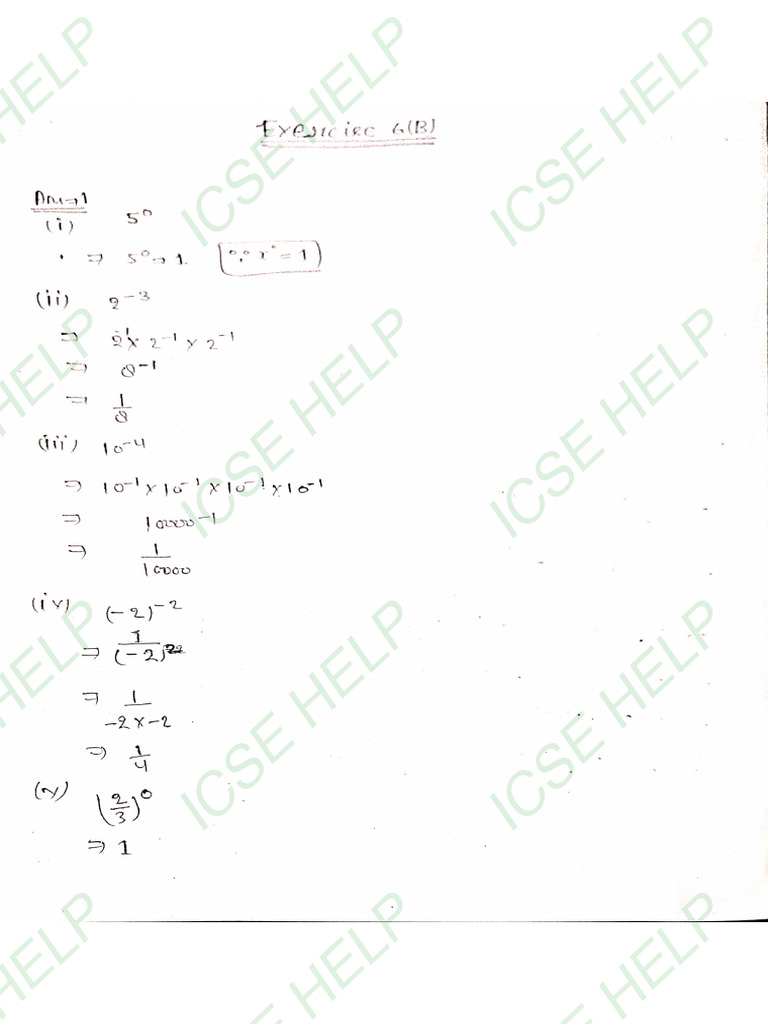 Exercise 6(B)
Ans→1
(i) 5⁰
⇒ 5⁰→1. (∵ x⁰ = 1)
(ii) 2⁻³
⇒ 2⁻¹ × 2⁻¹ × 2⁻¹
⇒ 8⁻¹
⇒ 1/8
(iii) 10⁻⁴
⇒ 10⁻¹ × 10⁻¹ × 10⁻¹ × 10⁻¹
⇒ 10000⁻¹
⇒ 1/10000
(iv) (-2)⁻²
⇒ 1/(-2)²
⇒ 1/-2×-2
⇒ 1/4
(v) (2/3)⁰
⇒ 1
ICSE HELP
ICSE HELP
ICSE HELP
ICSE HELP
ICSE HELP
ICSE HELP
ICSE HELP
ICSE HELP
HELP
HELP
HELP
HELP